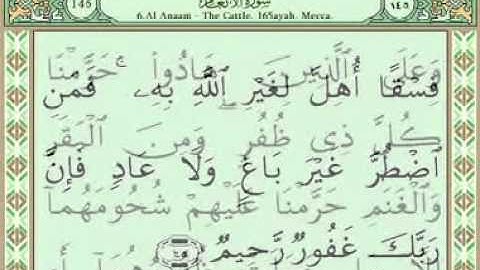 145 سورة الأنعام ١٤٥
6.Al Anaam - The Cattle. 165ayah. Mecca.
وَعَلَى ٱلَّذِينَ هَادُوا۟ حَرَّمْنَا
فِسْقًا أُهِلَّ لِغَيْرِ ٱللَّهِ بِهِۦ ۚ فَمَنِ
كُلَّ ذِى ظُفُرٍ ۖ وَمِنَ ٱلْبَقَرِ
ٱضْطُرَّ غَيْرَ بَاغٍ وَلَا عَادٍ فَإِنَّ
وَٱلْغَنَمِ حَرَّمْنَا عَلَيْهِمْ شُحُومَهُمَآ
رَبَّكَ غَفُورٌ رَّحِيمٌ ١٤٥